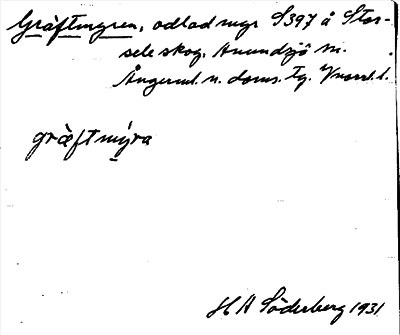 Gräftmyren, odlad myr S397 å Stor-
sele skog. Anundsjö sn.
Ångerml. n. doms. tg. Vnorrl. l.
græftmýra
H A Söderberg 1931